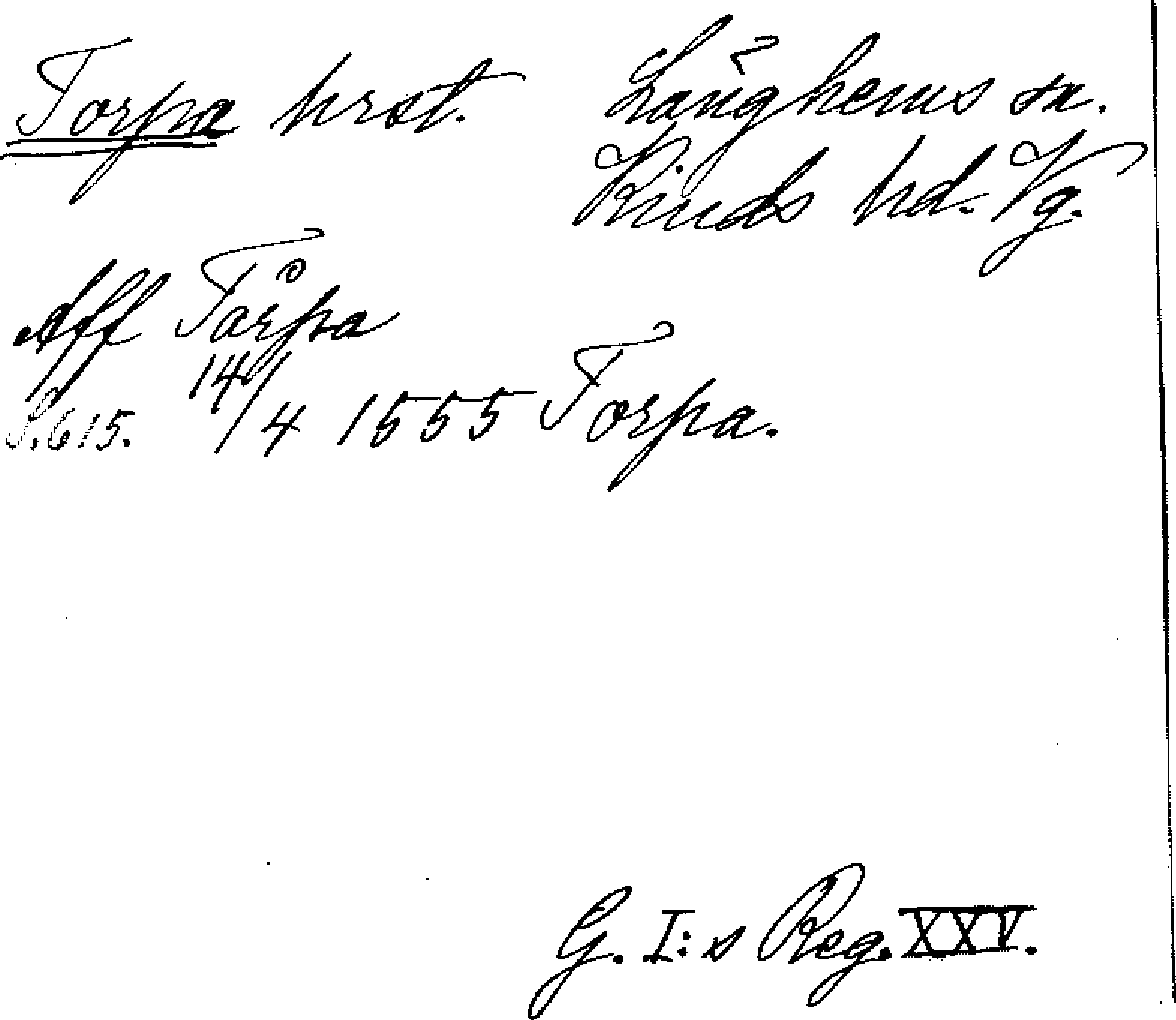 Torpa hrst. Långhems sn.
Kinds hd. Vg.
Aff Tårpa
S. 615. 14/4 1555 Torpa.
G. I:s Reg. XXV.